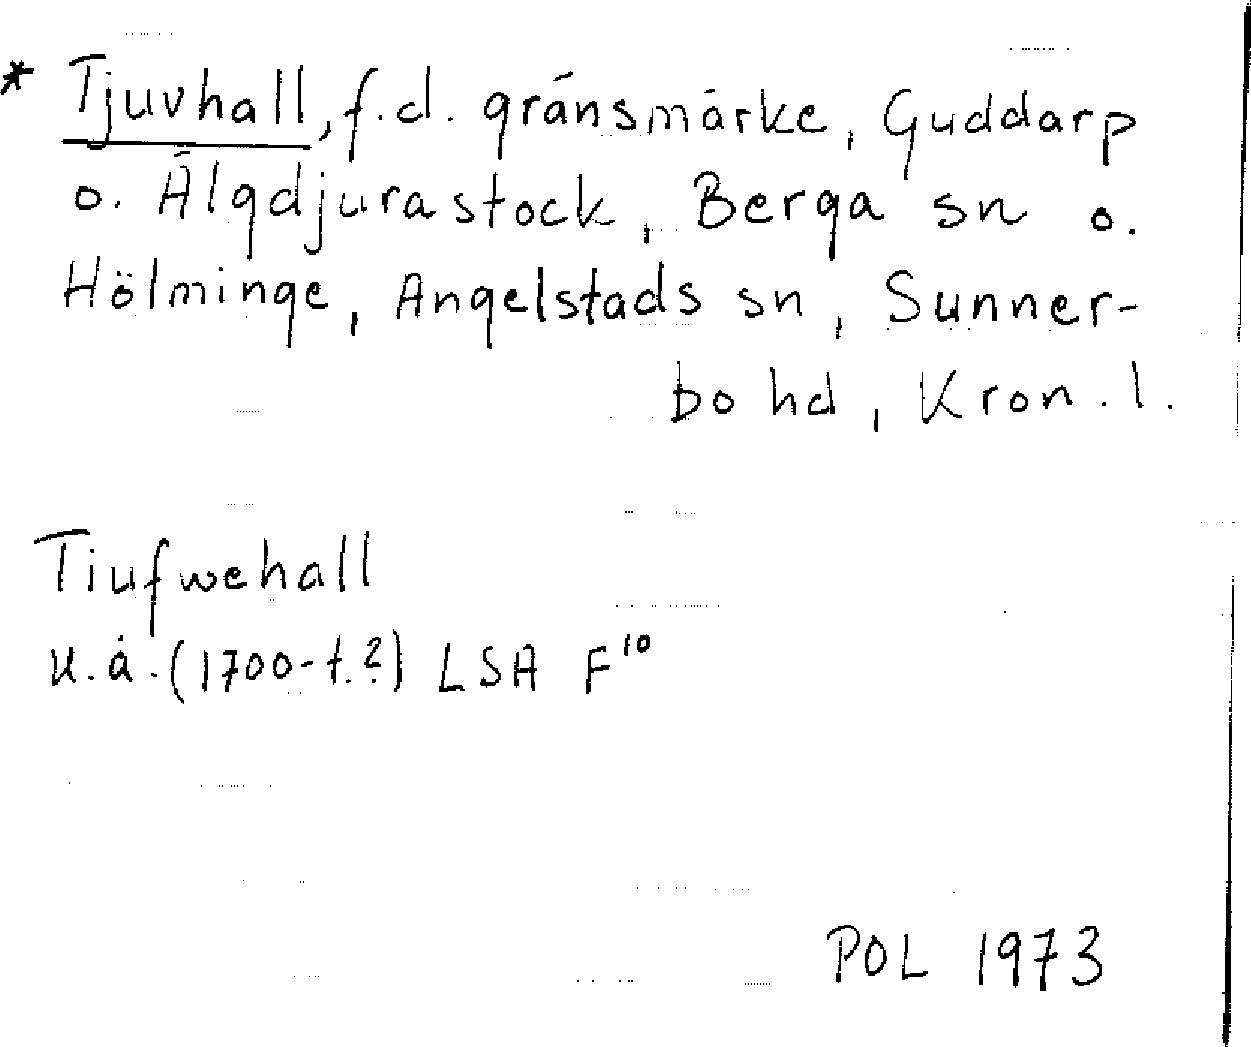 * Tjuvhall, f.d. gränsmärke, Guddarp
o. Älgdjurastock, Berga sn o.
Hölminge, Angelstads sn, Sunner-
bo hd, Kron. l.
Tiufwehall
u.å. (1700-t.?) LSA F¹⁰
POL 1973